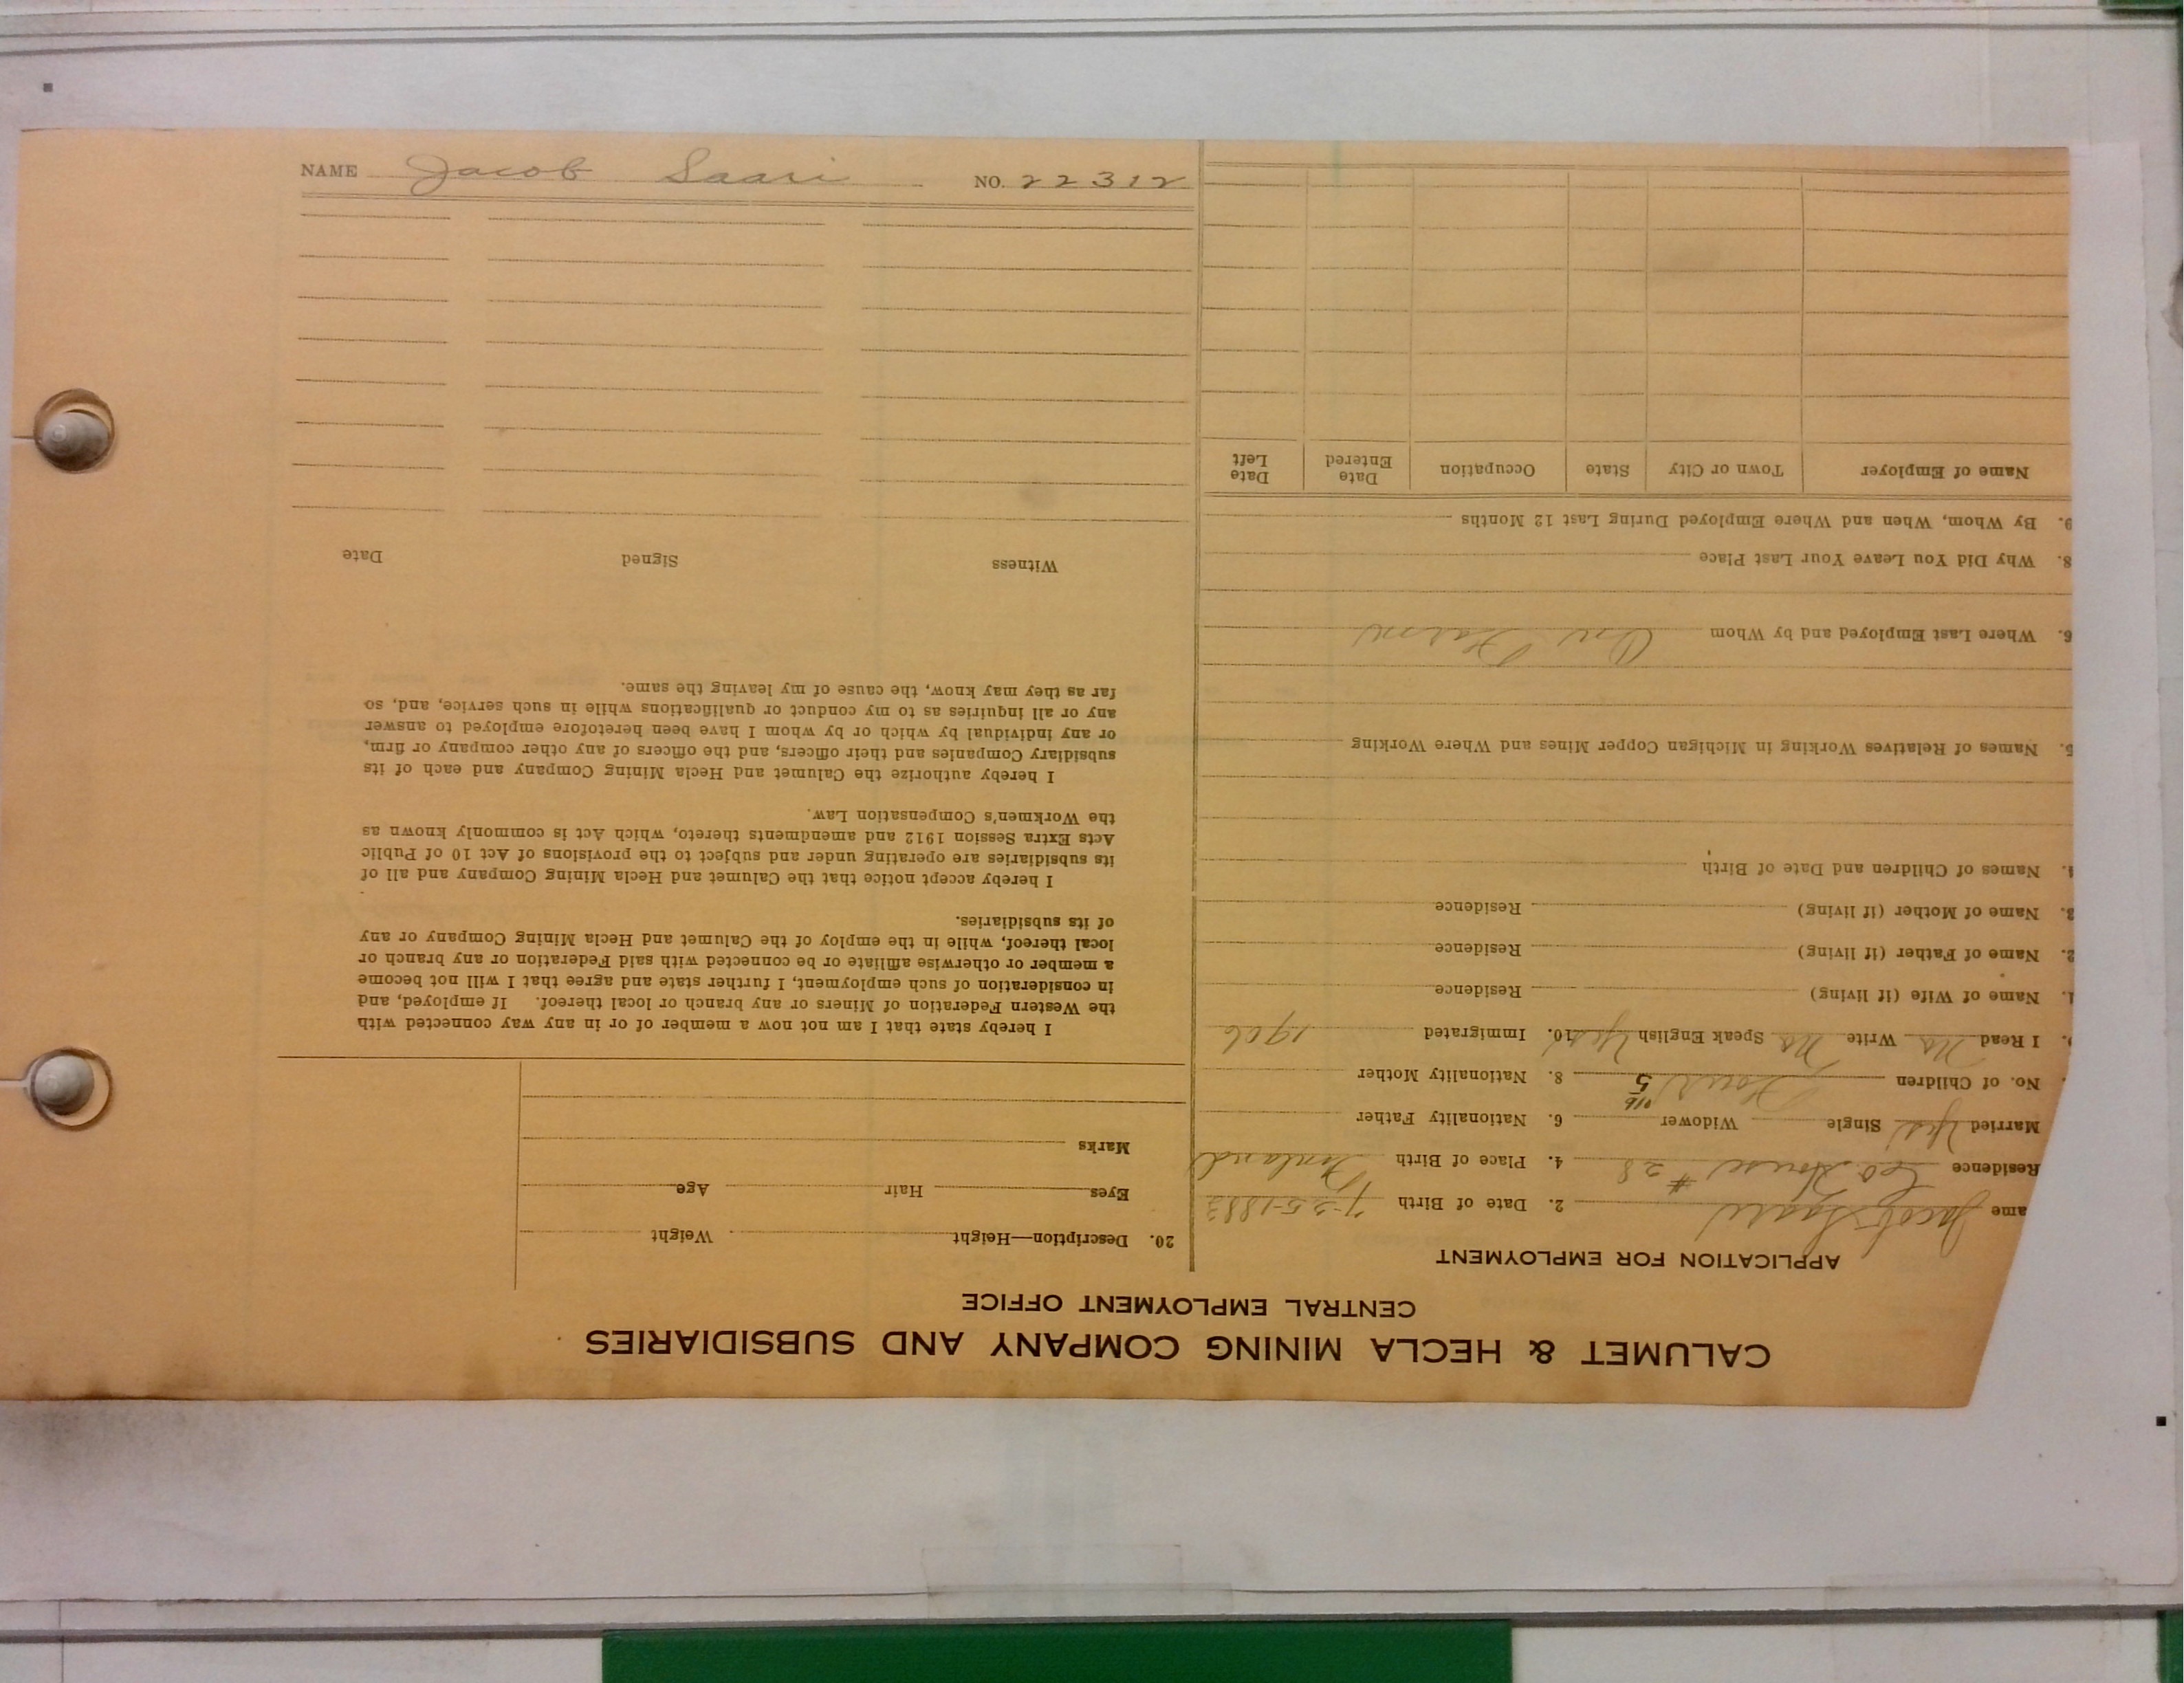 NAME Jacob Saari NO. 22312
CALUMET & HECLA MINING COMPANY AND SUBSIDIARIES
CENTRAL EMPLOYMENT OFFICE
APPLICATION FOR EMPLOYMENT
ame Jacob Saari 2. Date of Birth 7-25-1883
Residence Co House #28 4. Place of Birth Finland
Married Yes Single Widower 6. Nationality Father
No. of Children Four 5 8. Nationality Mother
9. I Read No Write No Speak English Yes 10. Immigrated 1906
1. Name of Wife (if living) Residence
2. Name of Father (if living) Residence
3. Name of Mother (if living) Residence
4. Names of Children and Date of Birth
5. Names of Relatives Working in Michigan Copper Mines and Where Working
6. Where Last Employed and by Whom On Farm
8. Why Did You Leave Your Last Place
9. By Whom, When and Where Employed During Last 12 Months
Name of Employer Town or City State Occupation Date Entered Date Left
20. Description—Height Weight
Eyes Hair Age
Marks
I hereby state that I am not now a member of or in any way connected with
the Western Federation of Miners or any branch or local thereof. If employed, and
in consideration of such employment, I further state and agree that I will not become
a member or otherwise affiliate or be connected with said Federation or any branch or
local thereof, while in the employ of the Calumet and Hecla Mining Company or any
of its subsidiaries.
I hereby accept notice that the Calumet and Hecla Mining Company and all of
its subsidiaries are operating under and subject to the provisions of Act 10 of Public
Acts Extra Session 1912 and amendments thereto, which Act is commonly known as
the Workmen's Compensation Law.
I hereby authorize the Calumet and Hecla Mining Company and each of its
subsidiary Companies and their officers, and the officers of any other company or firm,
or any individual by which or by whom I have been heretofore employed to answer
any or all inquiries as to my conduct or qualifications while in such service, and, so
far as they may know, the cause of my leaving the same.
Witness Signed Date